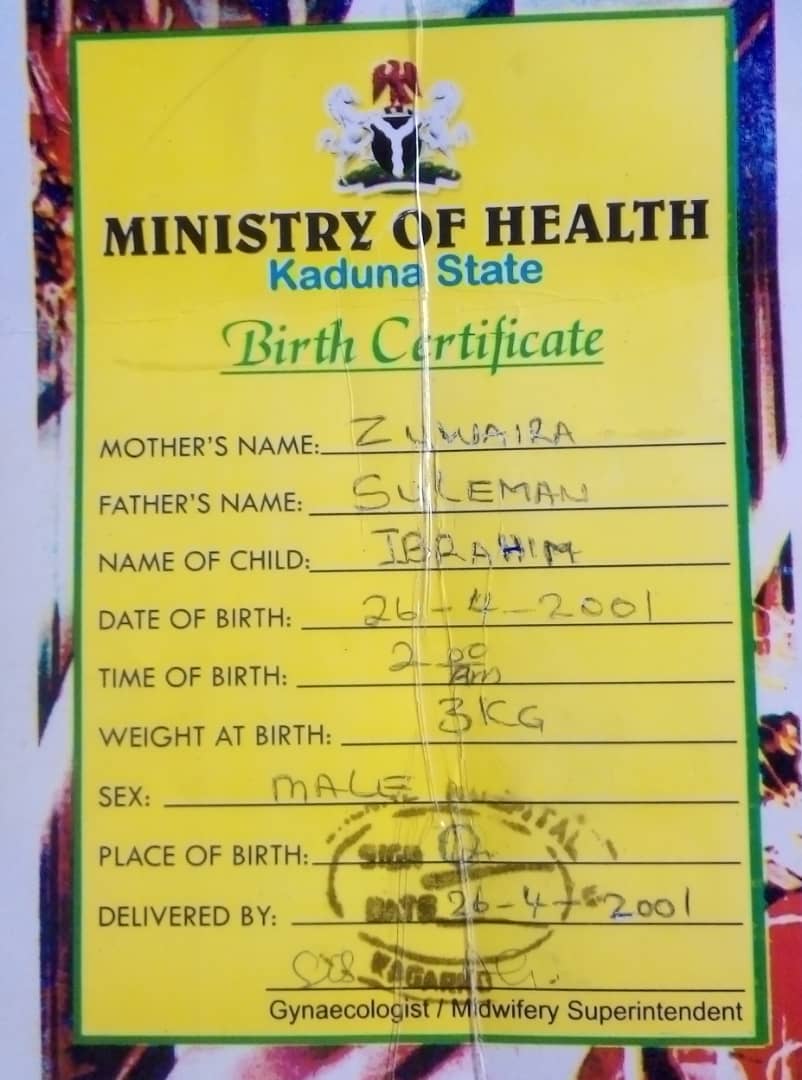 MINISTRY OF HEALTH
Kaduna State
Birth Certificate
MOTHER'S NAME: ZUWAIRA
FATHER'S NAME: SULEMAN
NAME OF CHILD: IBRAHIM
DATE OF BIRTH: 26-4-2001
TIME OF BIRTH: 2-00 am
WEIGHT AT BIRTH: 3KG
SEX: MALE
HOSPITAL
PLACE OF BIRTH: SIGN
DELIVERED BY: DATE 26-4-2001
KAGARKO
Gynaecologist / Midwifery Superintendent